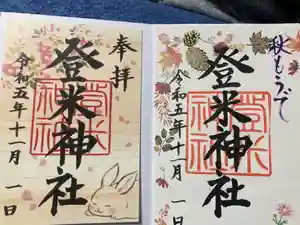 奉拝
登米神社
令和五年十一月一日
秋もうで
登米神社
令和五年十一月一日